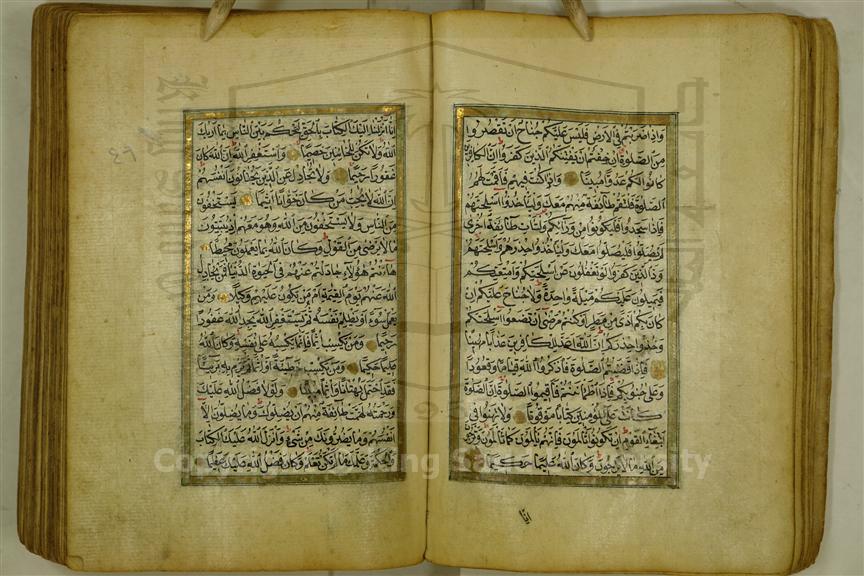 واذا ضربتم في الارض فليس عليكم جناح ان تقصروا
من الصلوة ان خفتم ان يفتنكم الذين كفروا ان الكافرين
كانوا لكم عدوا مبينا واذا كنت فيهم فاقمت لهم
الصلوة فلتقم طائفة منهم معك ولياخذوا اسلحتهم
فاذا سجدوا فليكونوا من ورائكم ولتات طائفة اخرى
لم يصلوا فليصلوا معك ولياخذوا حذرهم واسلحتهم
ود الذين كفروا لو تغفلون عن اسلحتكم وامتعتكم
فيميلون عليكم ميلة واحدة ولا جناح عليكم ان
كان بكم اذى من مطر او كنتم مرضى ان تضعوا اسلحتكم
وخذوا حذركم ان الله اعد للكافرين عذابا مهينا
فاذا قضيتم الصلوة فاذكروا الله قياما وقعودا
وعلى جنوبكم فاذا اطمأننتم فاقيموا الصلوة ان الصلوة
كانت على المؤمنين كتابا موقوتا ولا تهنوا في
ابتغاء القوم ان تكونوا تألمون فانهم يألمون كما تألمون وترجون
من الله ما لا يرجون وكان الله عليما حكيما
انا
انا انزلنا اليك الكتاب بالحق لتحكم بين الناس بما اريك
الله ولا تكن للخائنين خصيما واستغفر الله ان الله كان
غفورا رحيما ولا تجادل عن الذين يختانون انفسهم
ان الله لا يحب من كان خوانا اثيما يستخفون
من الناس ولا يستخفون من الله وهو معهم اذ يبيتون
ما لا يرضى من القول وكان الله بما يعملون محيطا
ها انتم هؤلاء جادلتم عنهم في الحيوة الدنيا فمن يجادل
الله عنهم يوم القيمة ام من يكون عليهم وكيلا ومن
يعمل سوءا او يظلم نفسه ثم يستغفر الله يجد الله غفورا
رحيما ومن يكسب اثما فانما يكسبه على نفسه وكان الله
عليما حكيما ومن يكسب خطيئة او اثما ثم يرم به بريئا
فقد احتمل بهتانا واثما مبينا ولولا فضل الله عليك
ورحمته لهمت طائفة منهم ان يضلوك وما يضلون الا
انفسهم وما يضرونك من شيء وانزل الله عليك الكتاب
والحكمة وعلمك ما لم تكن تعلم وكان فضل الله عليك عظيما
٤٦
Copyright © King Saud University